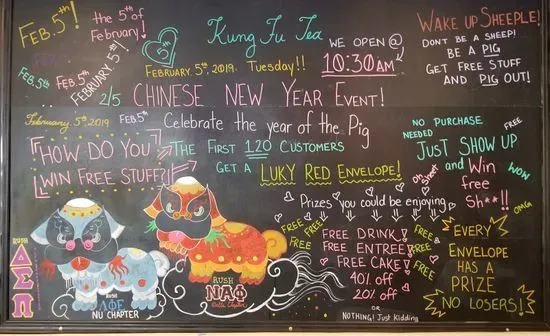 FEB. 5th!
the 5th of
February!
FEB. 5th!
FEB. 5th
FEB. 5th
FEBRUARY 5th!
2/5
Kung Fu Tea
FEBRUARY 5th, 2019. Tuesday!!
WE OPEN @
10:30AM
WAKE UP SHEEPLE!
DON'T BE A SHEEP!
BE A PIG
GET FREE STUFF
AND PIG OUT!
CHINESE NEW YEAR EVENT!
February 5th 2019
FEB 5th
Celebrate the year of the Pig
HOW DO YOU
WIN FREE STUFF?!
THE FIRST 120 CUSTOMERS
GET A LUKY RED ENVELOPE!
NO PURCHASE
NEEDED
FREE
JUST SHOW UP
and Win
free
Sh**!!
WOW
OMG
Oh Sheet
Prizes you could be enjoying
FREE
FREE
FREE
FREE
FREE DRINK!
FREE ENTREE!
FREE CAKE!
40% off
20% off
OR
NOTHING! Just Kidding
FREE
FREE
FREE
EVERY
ENVELOPE
HAS A
PRIZE
NO LOSERS!
RUSH
ΔΣΠ
RUSH
ΛΦΕ
NU CHAPTER
RUSH
ΝΑΦ